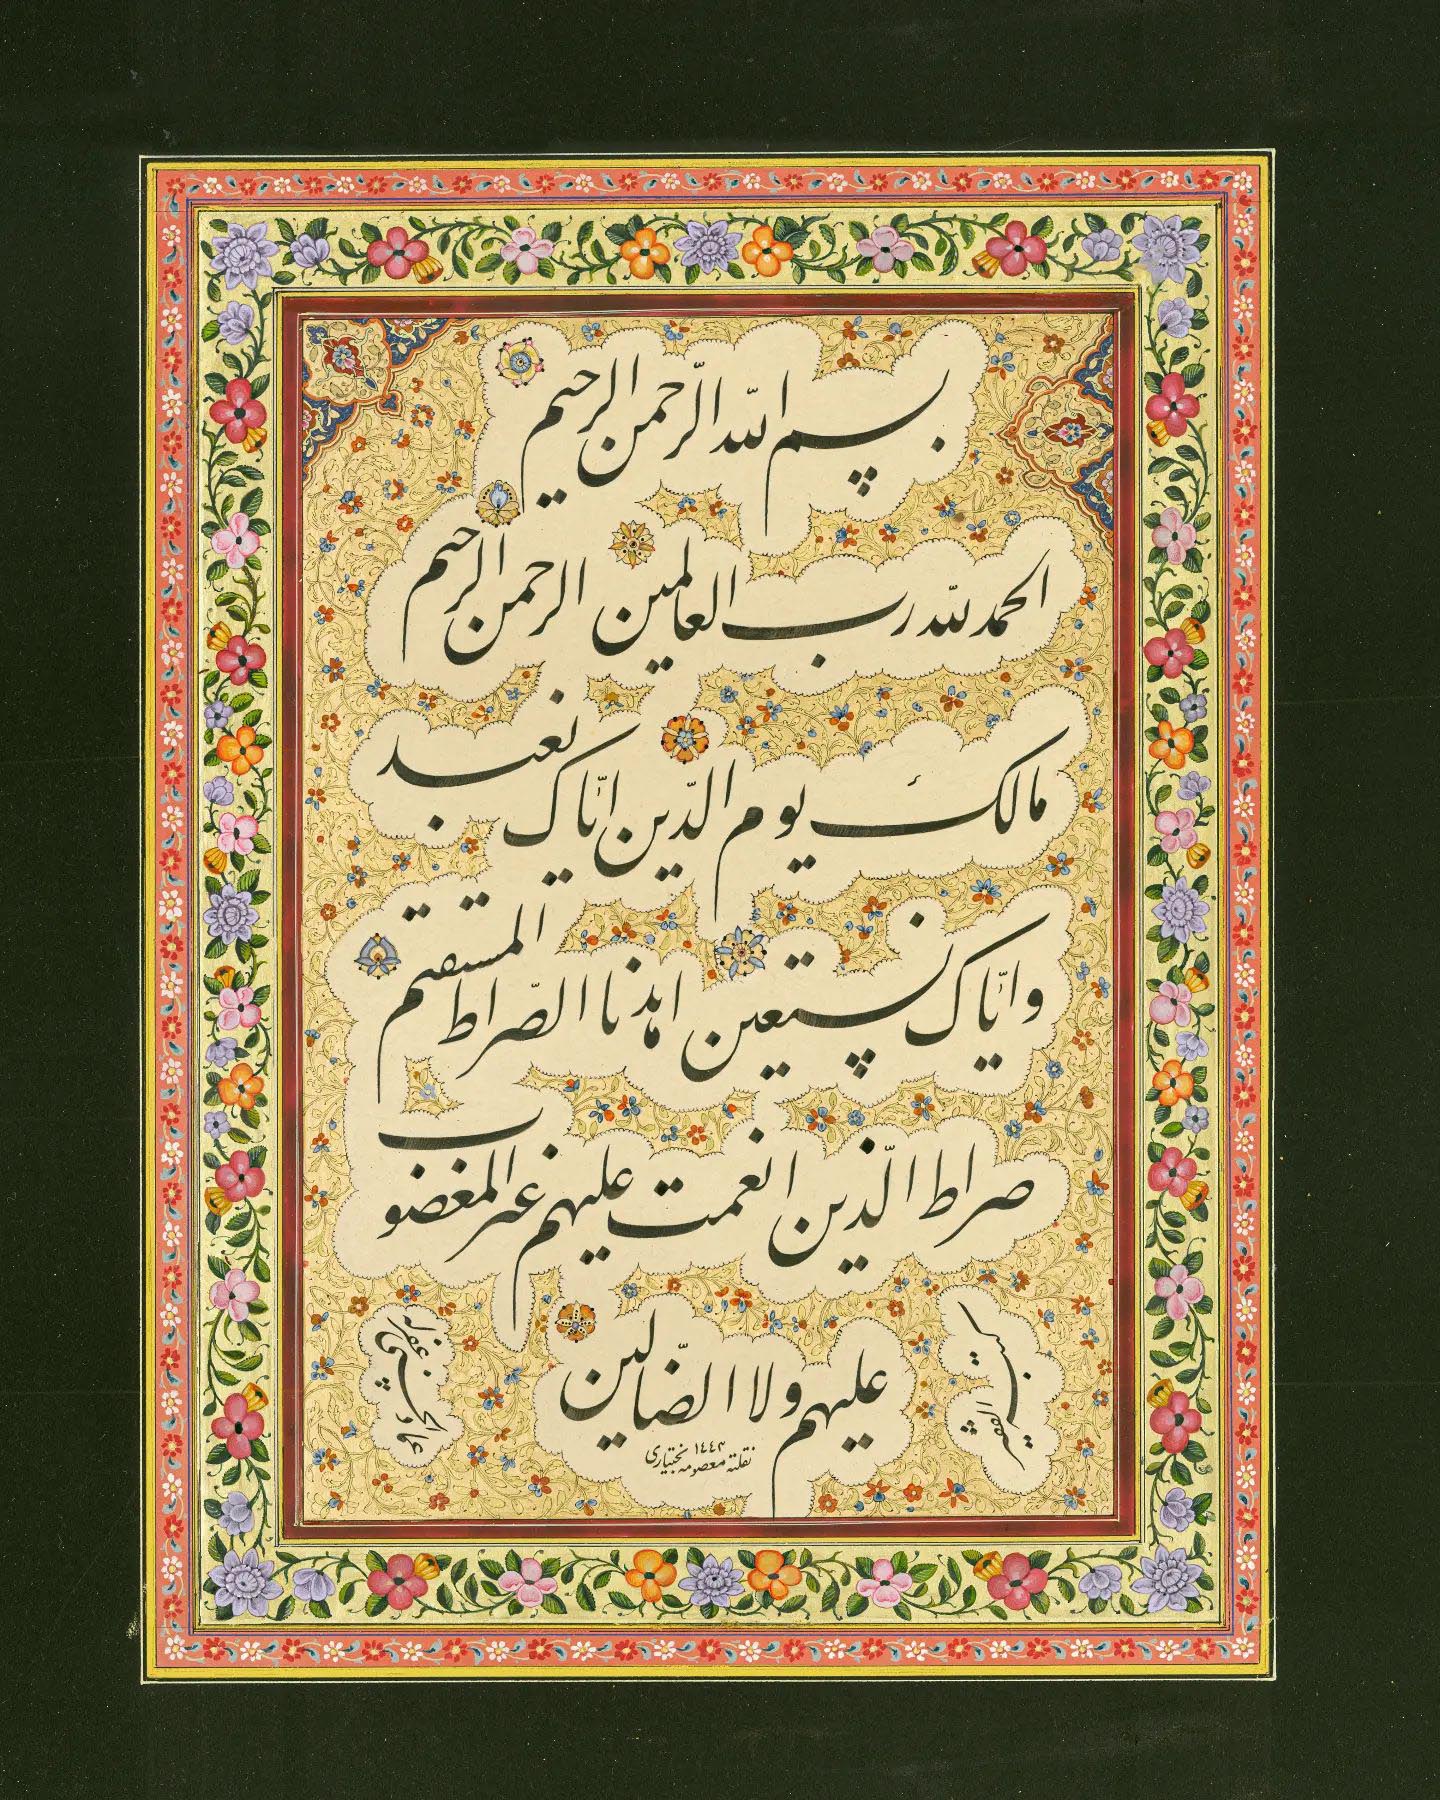 بسم الله الرّحمن الرحیم
الحمد لله رب العالمین الرحمن الرحیم
مالک یوم الدّین ایّاک نعبد
و ایّاک نستعین اهدنا الصّراط المستقیم
صراط الّذین انعمت علیهم غیر المغضوب
علیهم ولا الضّالین
عماد الحسنی غفر له
نقلته معصومه بختیاری ١٤٤٣